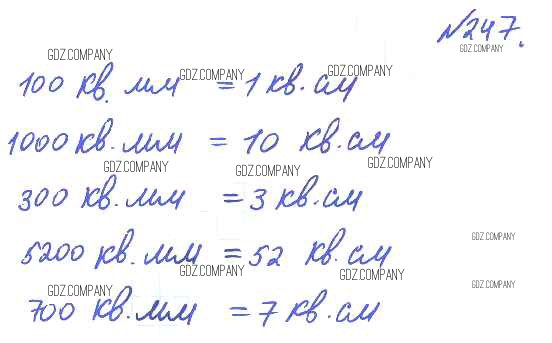 №247.
GDZ.COMPANY
GDZ.COMPANY
100 кв. мм = 1 кв. см
GDZ.COMPANY
GDZ.COMPANY
1000 кв. мм = 10 кв. см
GDZ.COMPANY
GDZ.COMPANY
GDZ.COMPANY
300 кв. мм = 3 кв. см
GDZ.COMPANY
5200 кв. мм = 52 кв. см
GDZ.COMPANY
GDZ.COMPANY
GDZ.COMPANY
GDZ.COMPANY
700 кв. мм = 7 кв. см